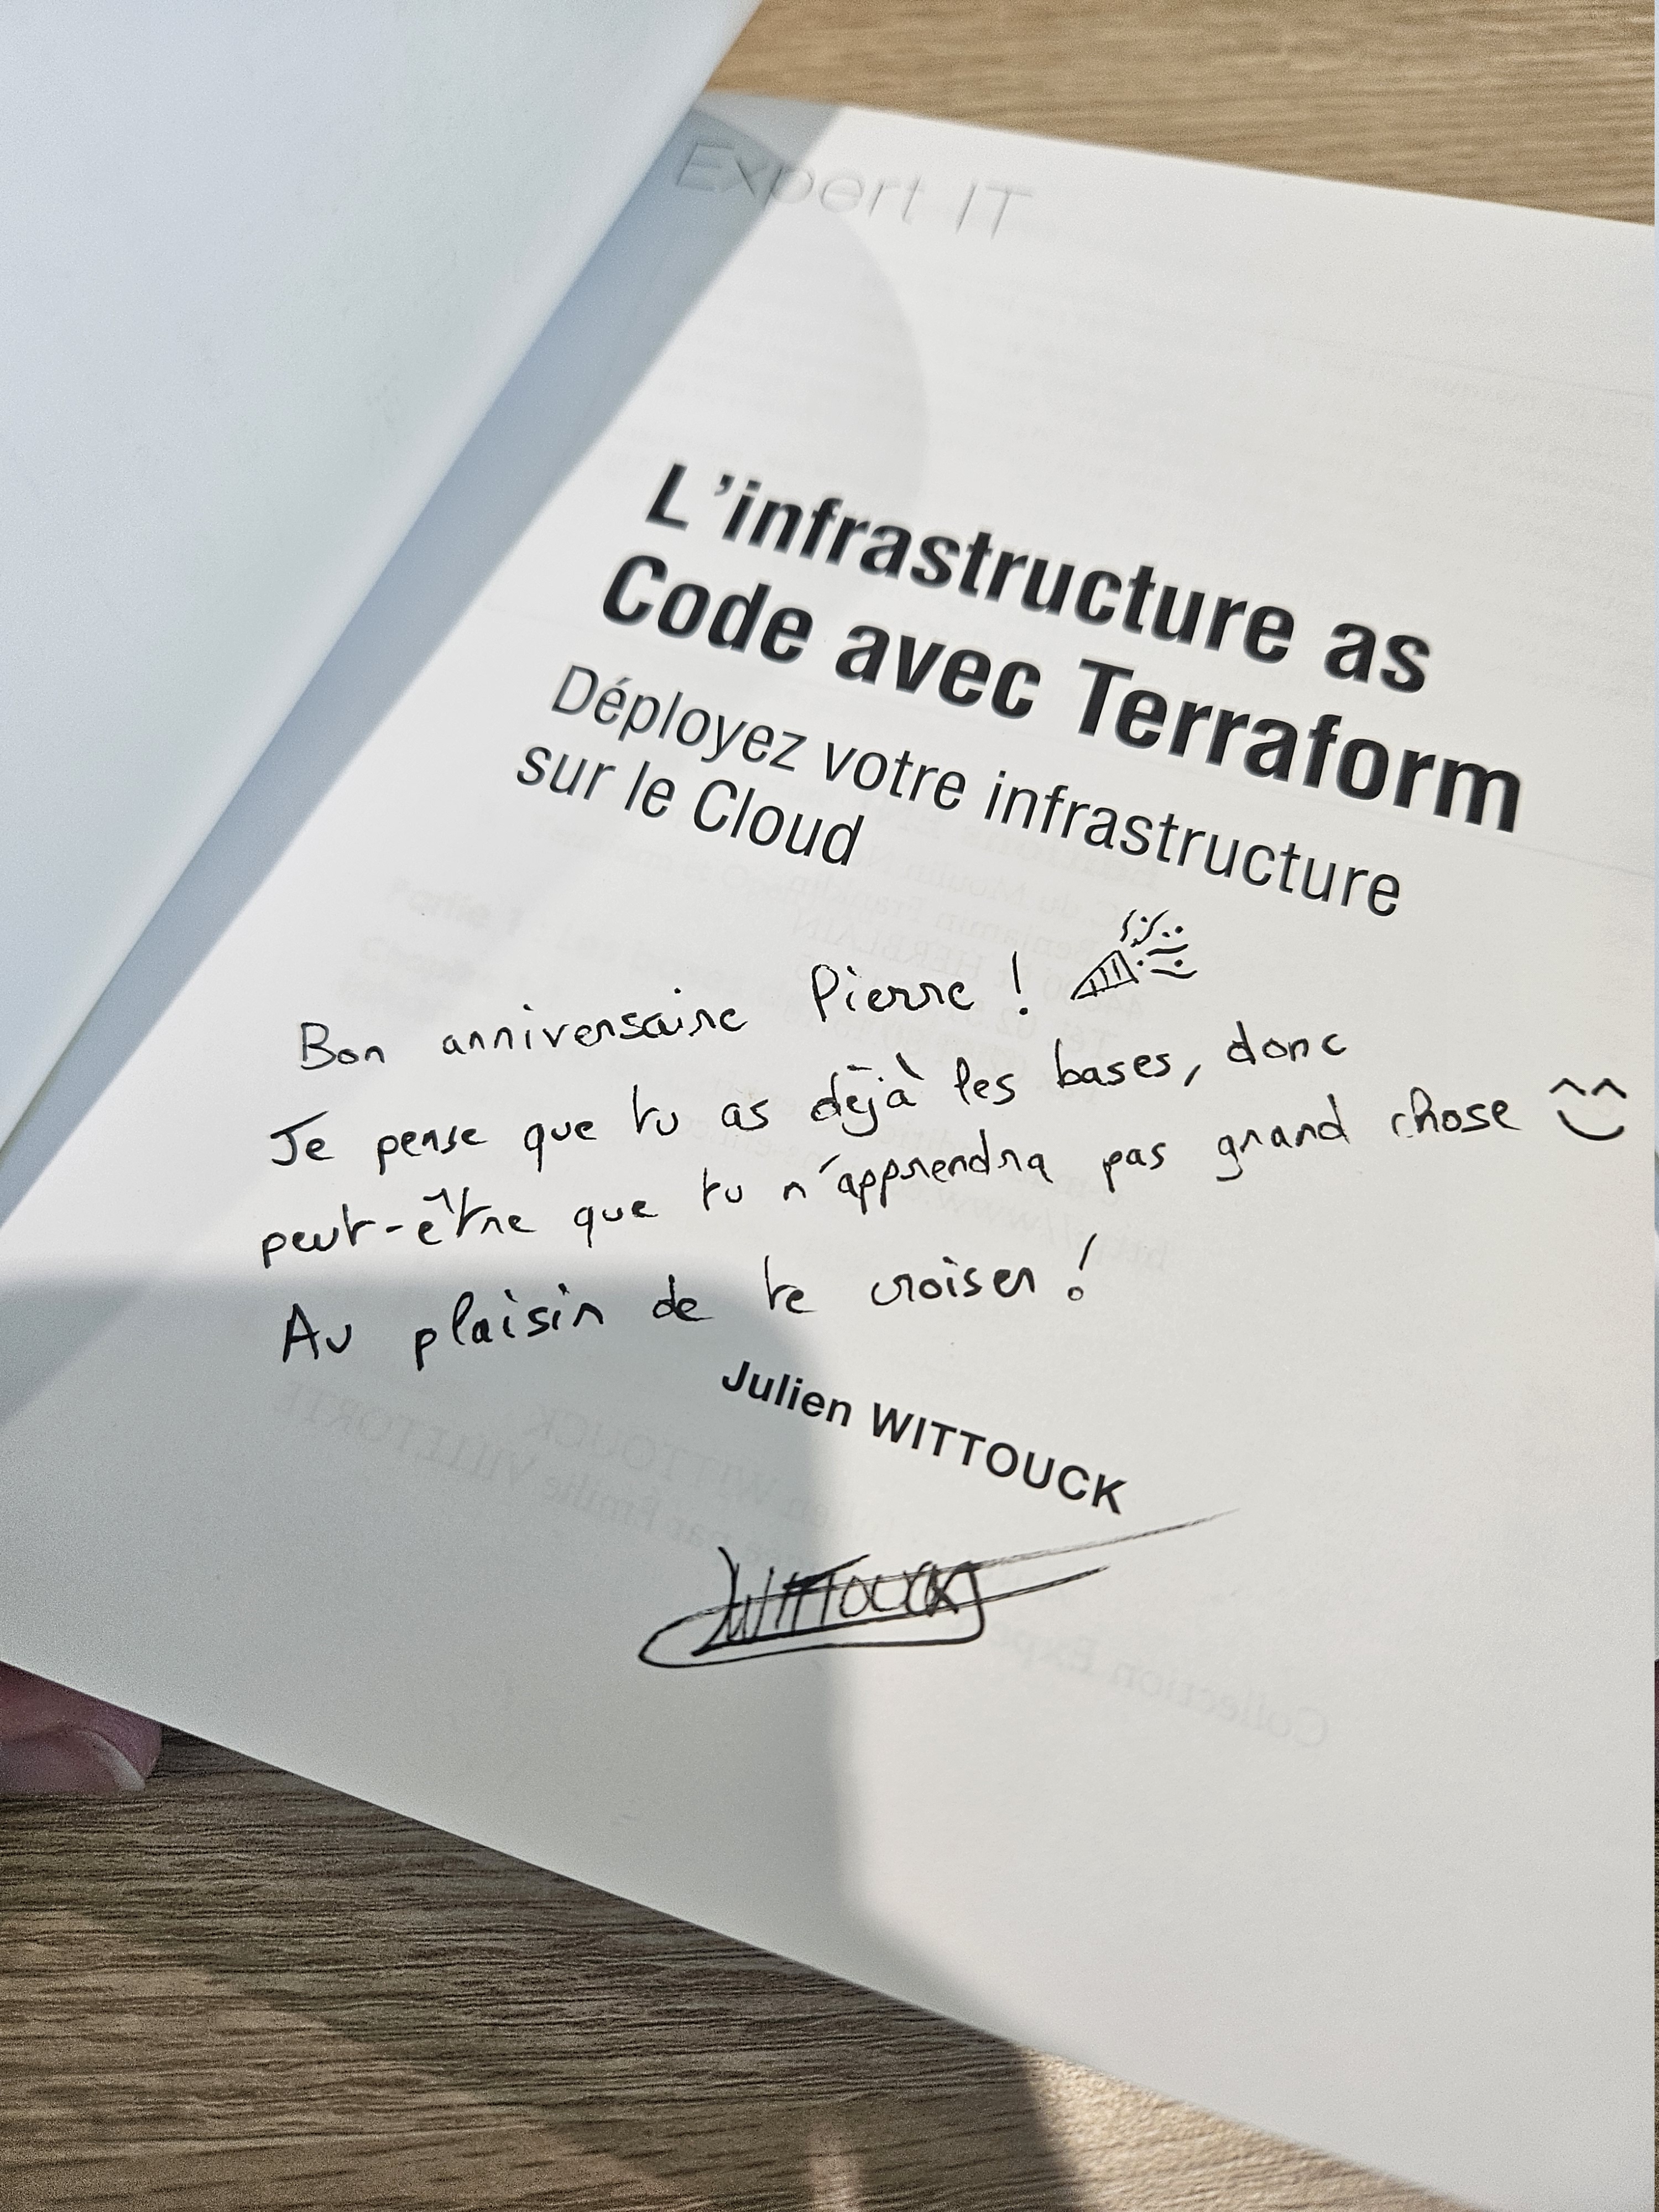 Expert IT
L'infrastructure as
Code avec Terraform
Déployez votre infrastructure
sur le Cloud
Bon anniversaire Pierre !
Je pense que tu as déjà les bases, donc
peut-être que tu n'apprendra pas grand chose ^^
Au plaisir de te croiser !
Julien WITTOUCK
WITTOUCK